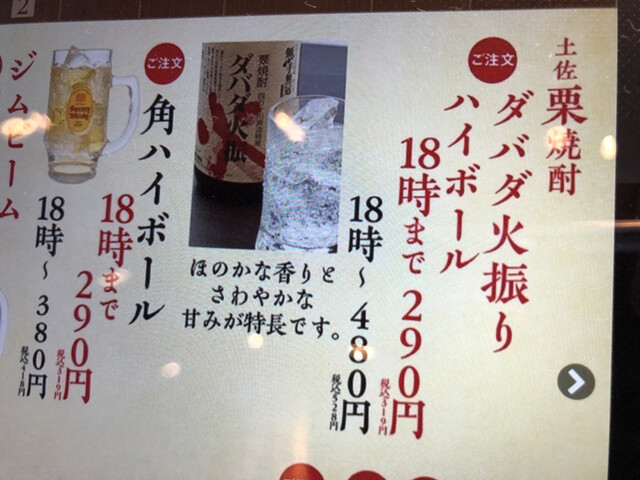 土佐栗焼酎
ご注文
ダバダ火振り
ハイボール
18時まで290円
税込319円
18時～480円
税込528円
栗焼酎
ダバダ火振
ほのかな香りと
さわやかな
甘みが特長です。
ご注文
角ハイボール
18時まで
290円
税込319円
18時～380円
税込418円
ジムビーム
2